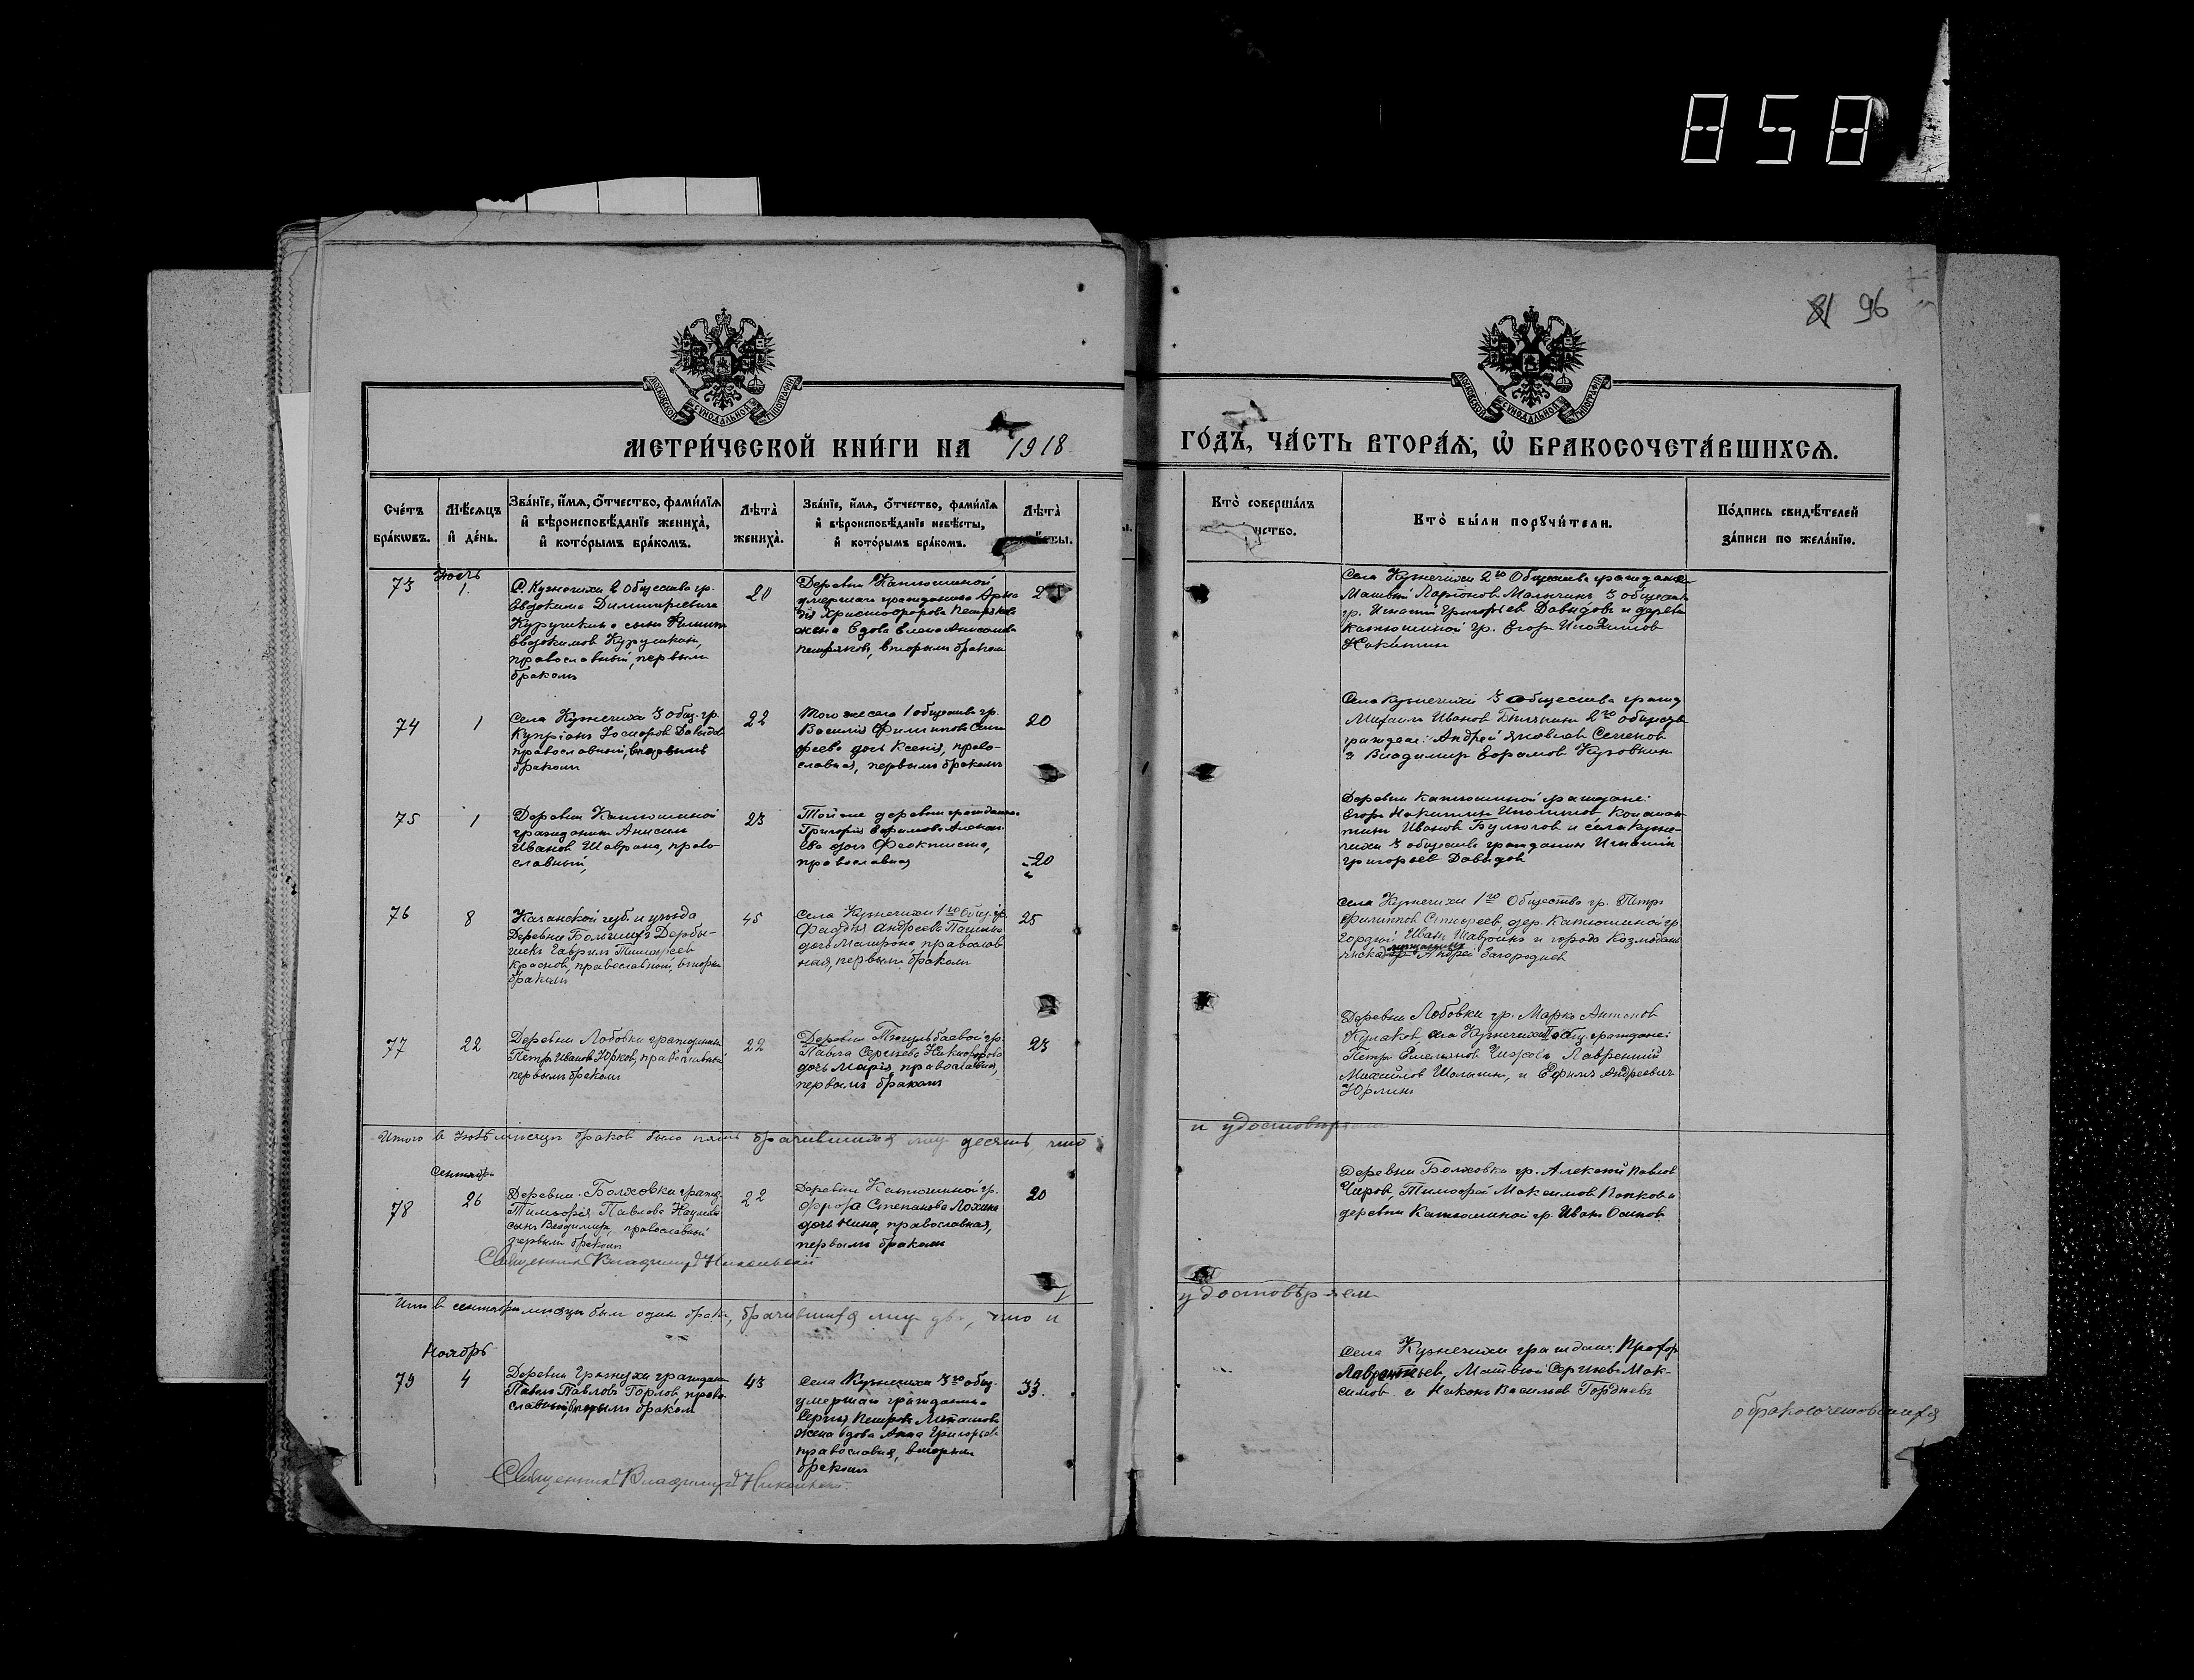 858
81 96
МОСКОВСКОЙ СѴНОДАЛЬНОЙ ТИПОГРАФІИ
МОСКОВСКОЙ СѴНОДАЛЬНОЙ ТИПОГРАФІИ
МЕТРИ́ЧЕСКОЙ КНИ́ГИ НА 1918 ГО́ДЪ, ЧА́СТЬ ВТОРА́Ѧ, Ѡ҆ БРАКОСОЧЕТА́ВШИХСѦ.
Сче́тъ
бра́кѡвъ.
Мѣ́сѧцъ
и҆ де́нь.
Зва́нїе, и҆́мѧ, ѻ҆́тчество, фами́лїѧ
и҆ вѣроисповѣ́данїе жениха̀,
и҆ кото́рымъ бра́комъ.
Лѣта̀
жениха̀.
Зва́нїе, и҆́мѧ, ѻ҆́тчество, фами́лїѧ
и҆ вѣроисповѣ́данїе невѣ́сты,
и҆ кото́рымъ бра́комъ.
Лѣта̀
Кто̀ соверша́лъ
Кто̀ бы́ли порꙋчи́тели.
По́дпись свидѣ́телей
за́писи по жела́нїю.
73
Іюль
1.
С. Кузнечихи 2 общества гр.
Евдокима Димитріевича
Курушкина сынъ
Евдокимовъ Курушкинъ,
православный, первымъ
бракомъ
20
Деревни Катюшиной
умершаго гражданина
Христофорова
жена вдова Елена Анисимова
вторымъ бракомъ
Села Кузнечихи 2го Общества граждане
Матвей Ларіонов Малычинъ 3 общества
гр. Игнатий Григорьев Давыдовъ и деревни
Катюшиной гр. Егоръ
Никитинъ
74
1
Села Кузнечихи 3 общ. гр.
Купріанъ Давидов
православный, вторымъ
бракомъ
22
Того же села 1 общества гр.
Василія Филиппова
дочь Ксенія, право-
славная, первымъ бракомъ
20
Села Кузнечихи 3 общества гражд
Михаилъ Иванов 2го общества
граждане: Андрей Яковлев Семенов
и Владимир Ефрамов Кузовкин
75
1
Деревни Катюшиной
гражданинъ Анисим
Иванов Шаврин, право-
славный,
23
Той же деревни гражданина
Григорія Ефимова
дочь Феоктиста,
православная
20
Деревни Катюшиной граждане:
Егоръ Никитинъ Констан-
тинъ Иванов и села Кузне-
чихи 3 общества гражданин Игнатій
Григорьев Давыдов
76
8
Казанской губ. и уѣзда,
Деревни Большихъ Дербы-
шекъ Гаврилъ Тимофеев
Краснов, православный, вторым
бракомъ
45
Села Кузнечихи 1го Общ. гр.
Фаддея Андреева
дочь Матрона православ
ная, первымъ бракомъ
25
Села Кузнечихи 1го Общество гр. Петръ
Филиппов дер. Катюшиной гр.
Гордѣй Иван Шаврин и города Козмодемь
янска Андрей Загороднев
77
22
Деревни Лобовки гражданинъ
Петръ Иванов Юрков, православный
первымъ бракомъ
22
Деревни гр.
Павла Сергѣева Никифорова
дочь Марія, православная,
первымъ бракомъ
23
Деревни Лобовки гр. Марко Антонов
Кулаков, села Кузнечихи общ. граждане:
Петръ Емельянов Чижовъ, Лаврентий
Михайлов Шалыгин, и Ефимъ Андреевич
Юрлинъ
Итого в Іюлѣ мѣсяцѣ браков было пять брачившихся лицъ десять, что
и удостовѣряемъ
Сентябрь
78
26
Деревни Болховки гражд.
Тимофея Павлова Наумова
сынъ Владимиръ, православный
первым бракомъ
22
Деревни Катюшиной гр.
Фрола Степанова Лохина
дочь Нина, православная,
первымъ бракомъ
20
Деревни Болховки гр. Алексѣй Павлов
Чиров, Тимофей Максимов Попков и
деревни Катюшиной гр. Иван Осипов
Священникъ Владимиръ Никольский
Итого в сентябрѣ мѣсяцѣ был один бракъ, брачившихся лицъ два, что и
удостовѣряемъ
Ноябрь
79
4
Деревни Грязнухи гражданин
Павелъ Павловъ Горлов, право
славный, вторымъ бракомъ
43
Села Кузнечихи 3го общ.
умершаго гражданина
Сергѣя Петрова
жена вдова Анна Григорьева
православная, вторымъ
бракомъ
33.
Села Кузнечихи граждане: Прохоръ
Лаврентьев, Матвѣй Сергѣев Мак-
симов и Никонъ Васильев Гордѣевъ
о бракосочетавшихся
Священникъ Владимиръ Никольский